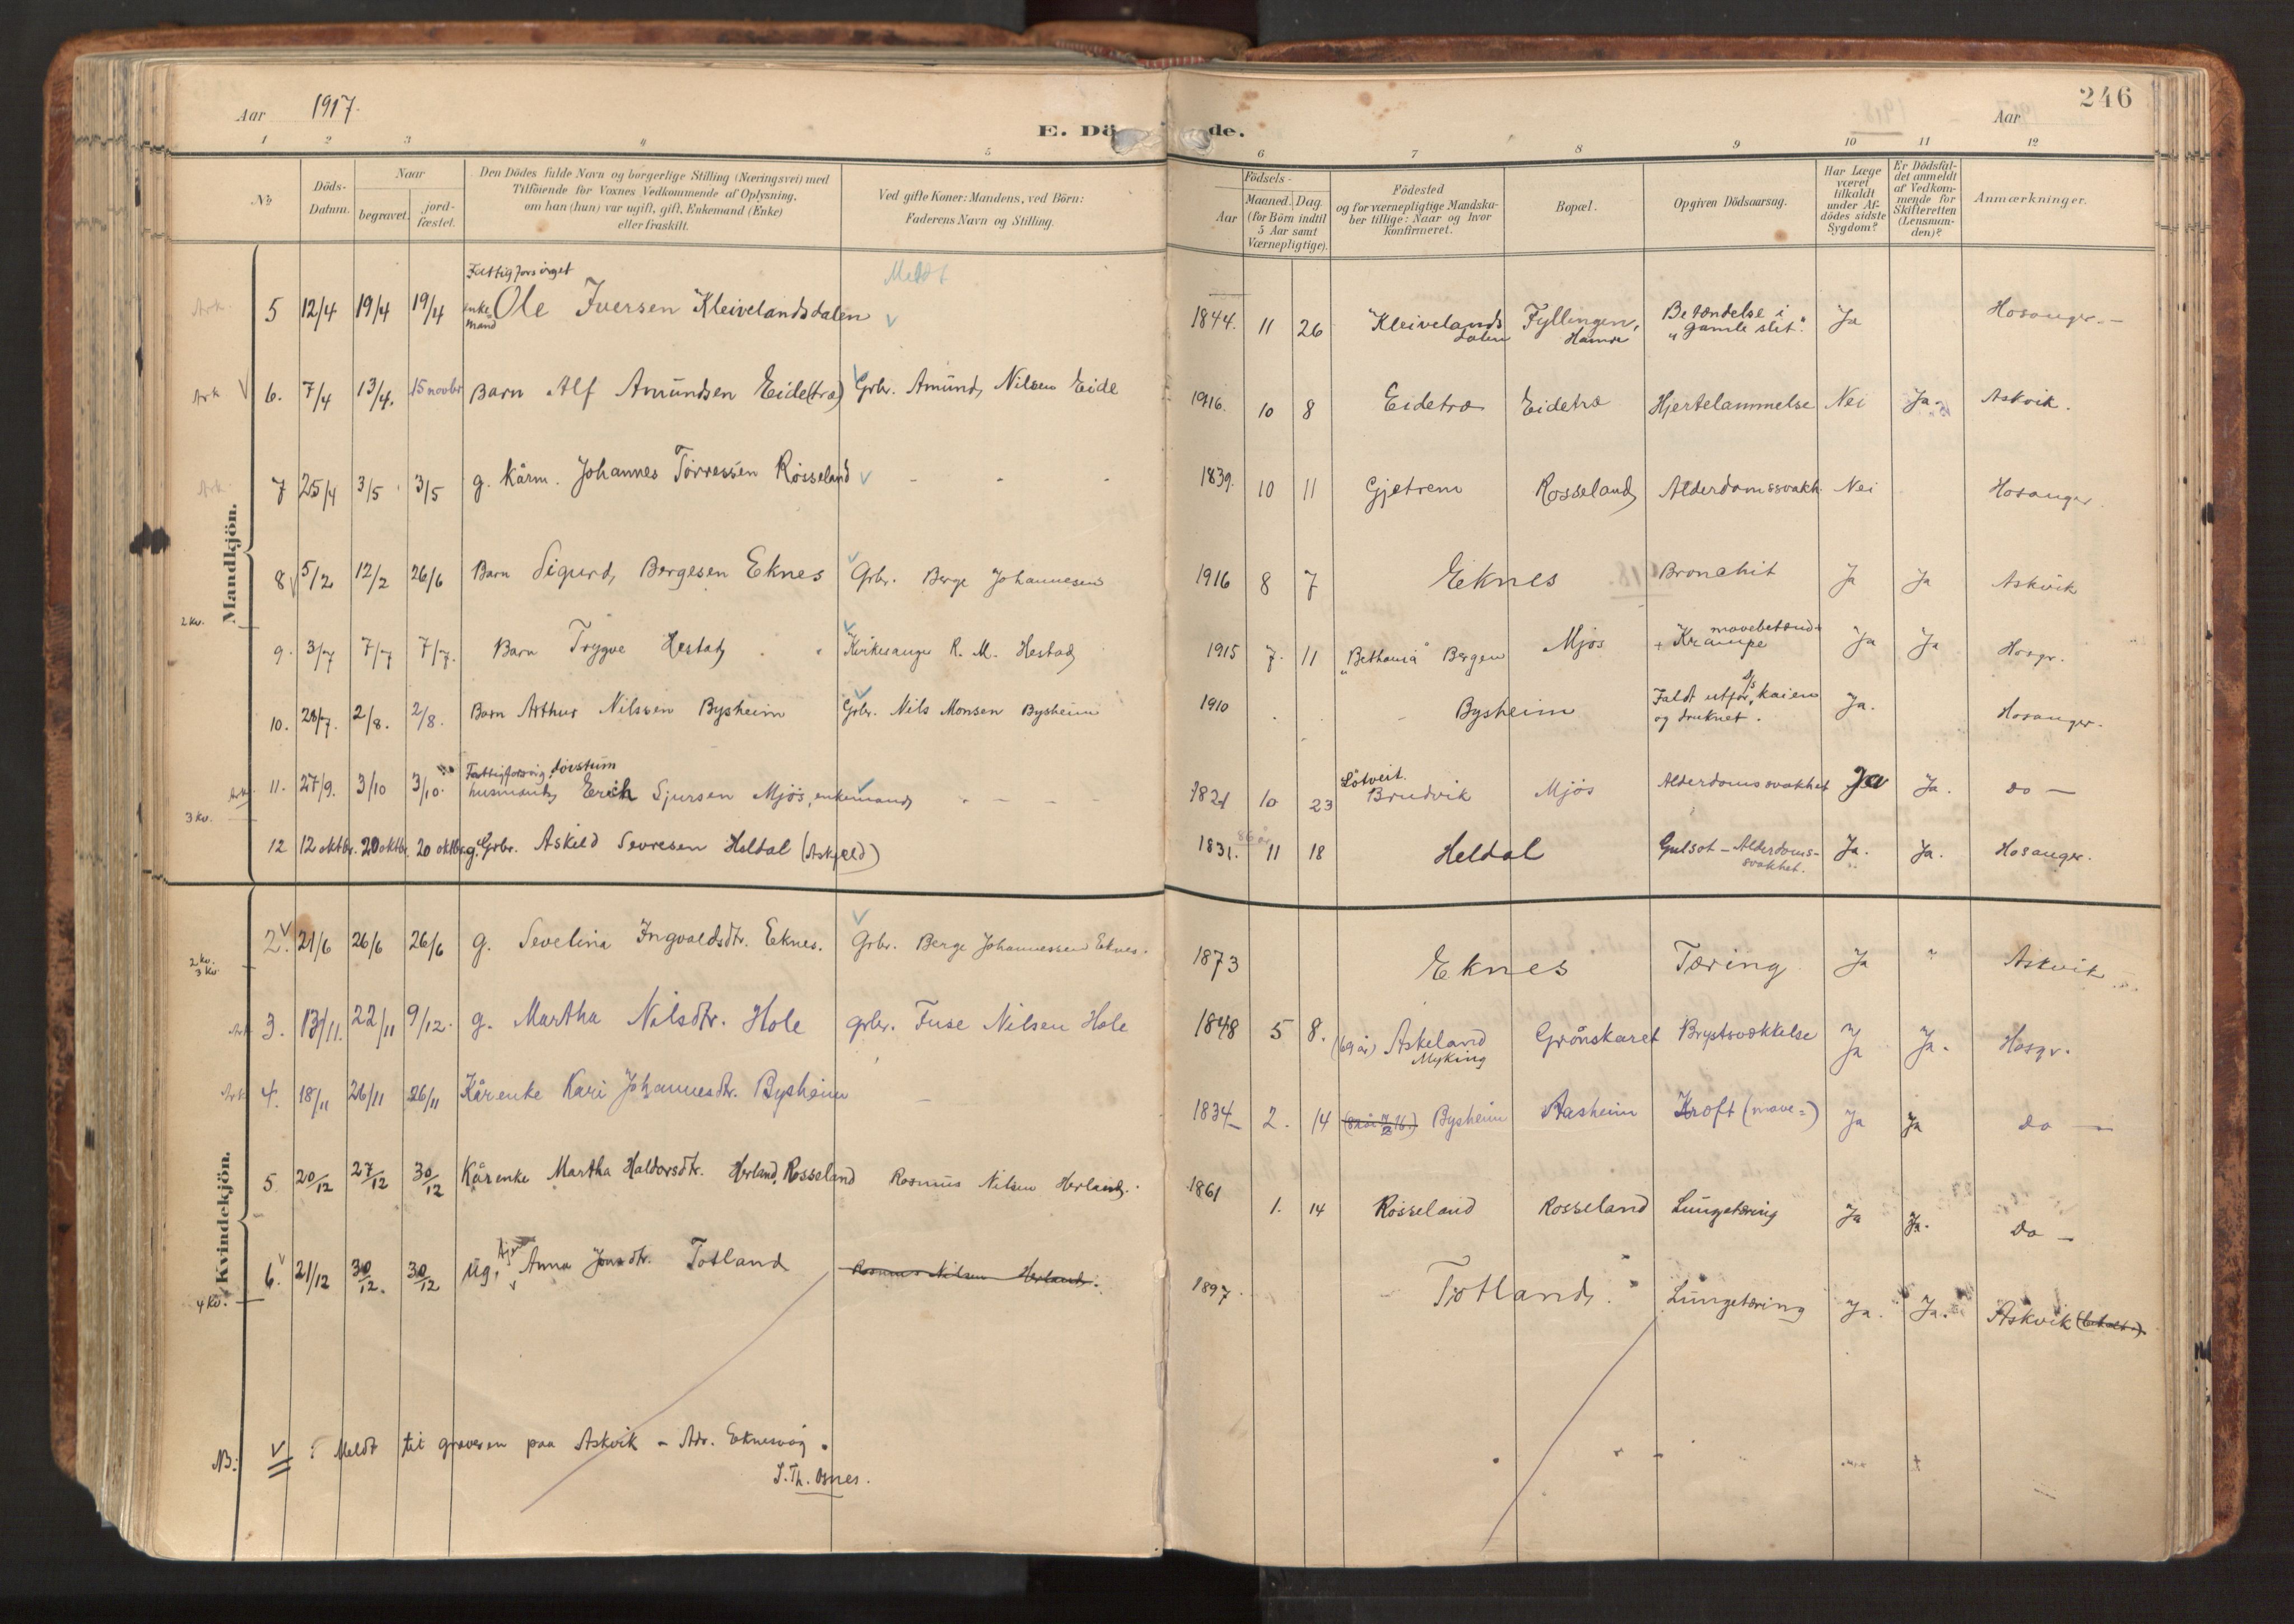 Aar 1917.
E. Dö de.
Aar
246
1 2 3 4 5 6 7 8 9 10 11 12
No
Döds-Datum.
Naar
begravet.
jord-fæstet.
Den Dödes fulde Navn og borgerlige Stilling (Næringsvei) med
Tilföiende for Voxnes Vedkommende af Oplysning,
om han (hun) var ugift, gift, Enkemand (Enke)
eller fraskilt.
Ved gifte Koner: Mandens, ved Börn:
Faderens Navn og Stilling.
Födsels-
Aar
Maaned. Dag.
(for Börn indtil
5 Aar samt
Værnepligtige).
Födested
og for værnepligtige Mandska-
ber tillige: Naar og hvor
konfirmeret.
Bopæl.
Opgiven Dödsaarsag.
Har Læge
været
tilkaldt
under Af-
dödes sidste
Sygdom?
Er Dödsfal-
det anmeldt
af Vedkom-
mende for
Skifteretten
(Lensman-
den)?
Anmærkninger.
Mandkjön.
Fattigforsörget Meldt
Ark. 5 12/4 19/4 19/4 enkemand Ole Iversen Kleivelandsdalen 1844. 11 26 Kleivelandsdalen Fyllingen, Hamre Betændelse i "gamle slit". Ja Hosanger. —
Ark V 6. 7/4 13/4. 15 novbr Barn Alf Amundsen Eide(træ) Grbr. Amund Nilsen Eide 1916. 10 8 Eidetræ Eidetræ Hjertelammelse Nei Ja. Askvik.
Ark. 7 25/4 3/5 3/5 g. Kårm. Johannes Torressen Rosseland 1839. 10 11 Gjetrem Rosseland Alderdomssvakh. Nei Hosanger.
8 V 5/2 12/2 26/6 Barn Sigurd Bergesen Eknes Grbr. Berge Johannesen 1916 8 7 Eknes Bronchit Ja Ja Askvik
2 kv.
9. 3/7 7/7 7/7. Barn Trygve Hestad Kirkesanger R. M. Hestad 1915 7. 11 "Bethania" Bergen Mjös mavebetænd= + Krampe Ja Ja Hosgr.
10. 28/7. 2/8. 2/8. Barn Arthur Nilssen Bysheim Grbr. Nils Monsen Bysheim 1910 Bysheim Faldt utfor D/S kaien og druknet. Ja. Hosanger.
Ark. 11. 27/9. 3/10 3/10. Fattigforsörg. dövstum husmand Erich Sjursen Mjös, enkemand 1821 10 23 Lötveit. Bruvik Mjös Alderdomssvakhet Ja Ja. do —
3 kv.
12 12 oktbr. 20 oktbr. 20 oktbr. g. Grbr. Askild Sevresen Heldal (Askjeld) 1831. 86 år 11 18 Heldal Gulsot - Alderdoms-svakhet. Ja. Ja. Hosanger.
Kvindekjön.
2. V 21/6 26/6 26/6 g. Sevelina Ingvaldsdtr. Eknes. Grbr. Berge Johannessen Eknes. 1873 Eknes Tæring Ja " Askvik
2 kv.
3 kv.
Ark 3. 13/11. 22/11 9/12. g. Martha Nilsdtr. Hole grbr. Fuse Nilsen Hole 1848 5 8. (69 år) Askeland Myking Grönskaret Brystsvækkelse Ja Ja. Hosgr.
Ark. 4. 18/11 26/11 26/11 Kårenke Kari Johannesdtr. Bysheim 1834 2. 14 Bysheim Aasheim Kræft (mave=) Ja Ja do —
5 20/12 27/12 30/12 Kårenke Martha Haldorsdtr. Herland, Rosseland Rasmus Nilsen Herland. 1861 1. 14 Rosseland Rosseland Lungetæring Ja Ja. do —
6. V 21/12 30/12. 30/12 ug. Anna Jonsdtr. Totland Rasmus Nilsen Herland. 1897. Totland. Lungetæring Ja. Ja. Askvik
4 kv.
NB: V : Meldt til graveren paa Askvik - Adr. Eknesvåg.
S. Th. Osnes.